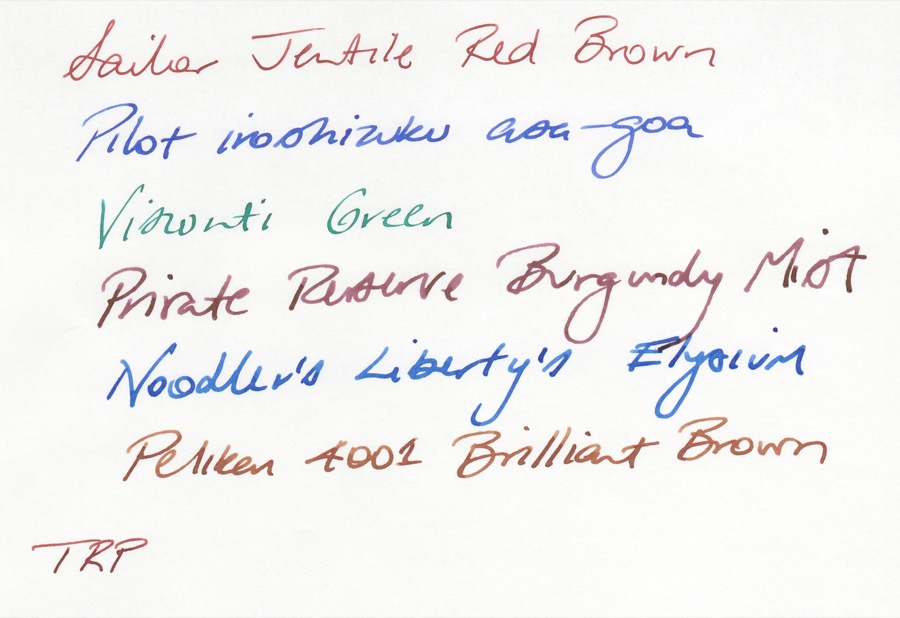 Sailor Jentile Red Brown
Pilot iroshizuku asa-gao
Visconti Green
Private Reserve Burgundy Mist
Noodler's Liberty's Elysium
Pelikan 4001 Brilliant Brown
TRP